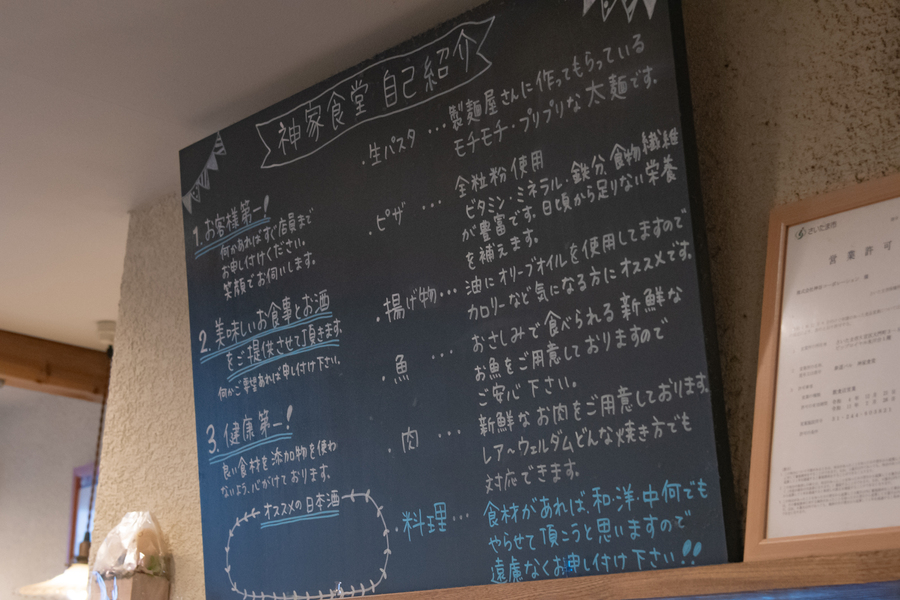 神家食堂 自己紹介
1. お客様第一!
何かあればすぐ店員まで
お申し付けください。
笑顔でお伺いします。
2. 美味しいお食事とお酒
をご提供させて頂きます
何かご要望あれば申し付け下さい。
3. 健康第一!
良い食材を添加物を使わ
ないよう、心がけております。
オススメの日本酒
・生パスタ … 製麺屋さんに作ってもらっている
モチモチ・プリプリな太麺です。
・ピザ … 全粒粉使用
ビタミン・ミネラル、鉄分、食物繊維
が豊富です。日頃から足りない栄養
を補えます。
・揚げ物… 油にオリーブオイルを使用してますので
カロリーなど気になる方にオススメです。
・魚 … おさしみで食べられる新鮮な
お魚をご用意しておりますので
ご安心下さい。
・肉 … 新鮮なお肉をご用意しております。
レア〜ウェルダムどんな焼き方でも
対応できます。
・料理… 食材があれば、和・洋・中何でも
やらせて頂こうと思いますので
遠慮なくお申し付け下さい!!
さいたま市
営業許可